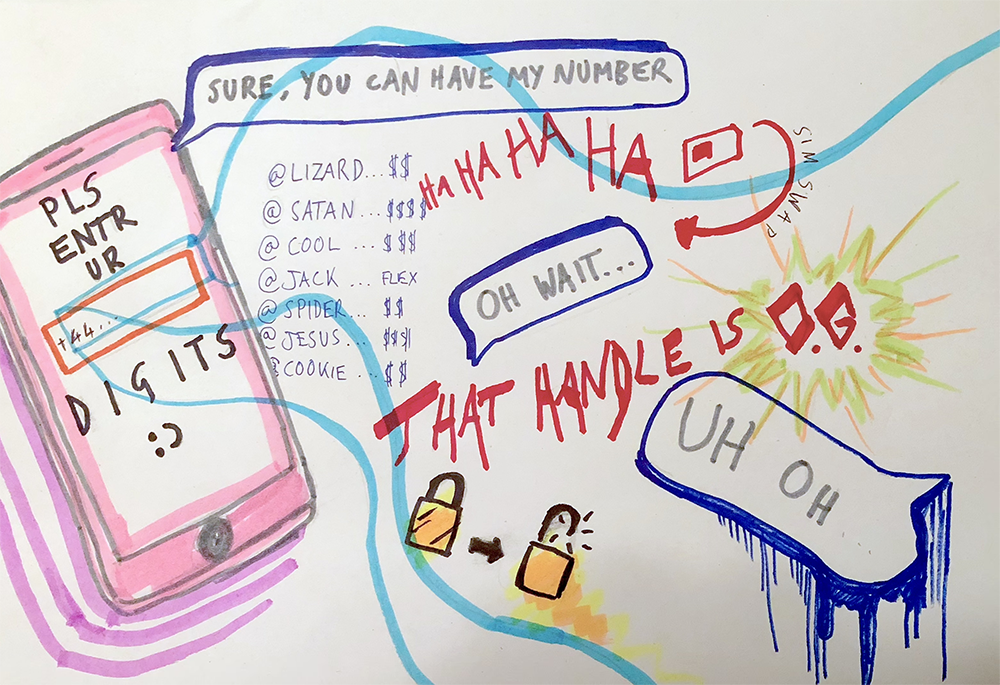 SURE, YOU CAN HAVE MY NUMBER
PLS
ENTR
UR
+44...
DIGITS
:)
@LIZARD...$$
@SATAN...$$$$
@COOL ...$$$
@JACK ... FLEX
@SPIDER... $$
@JESUS... $$$
@COOKIE ...$$
HA HA HA HA
SIM SWAP
OH WAIT...
THAT HANDLE IS O.G.
UH
OH